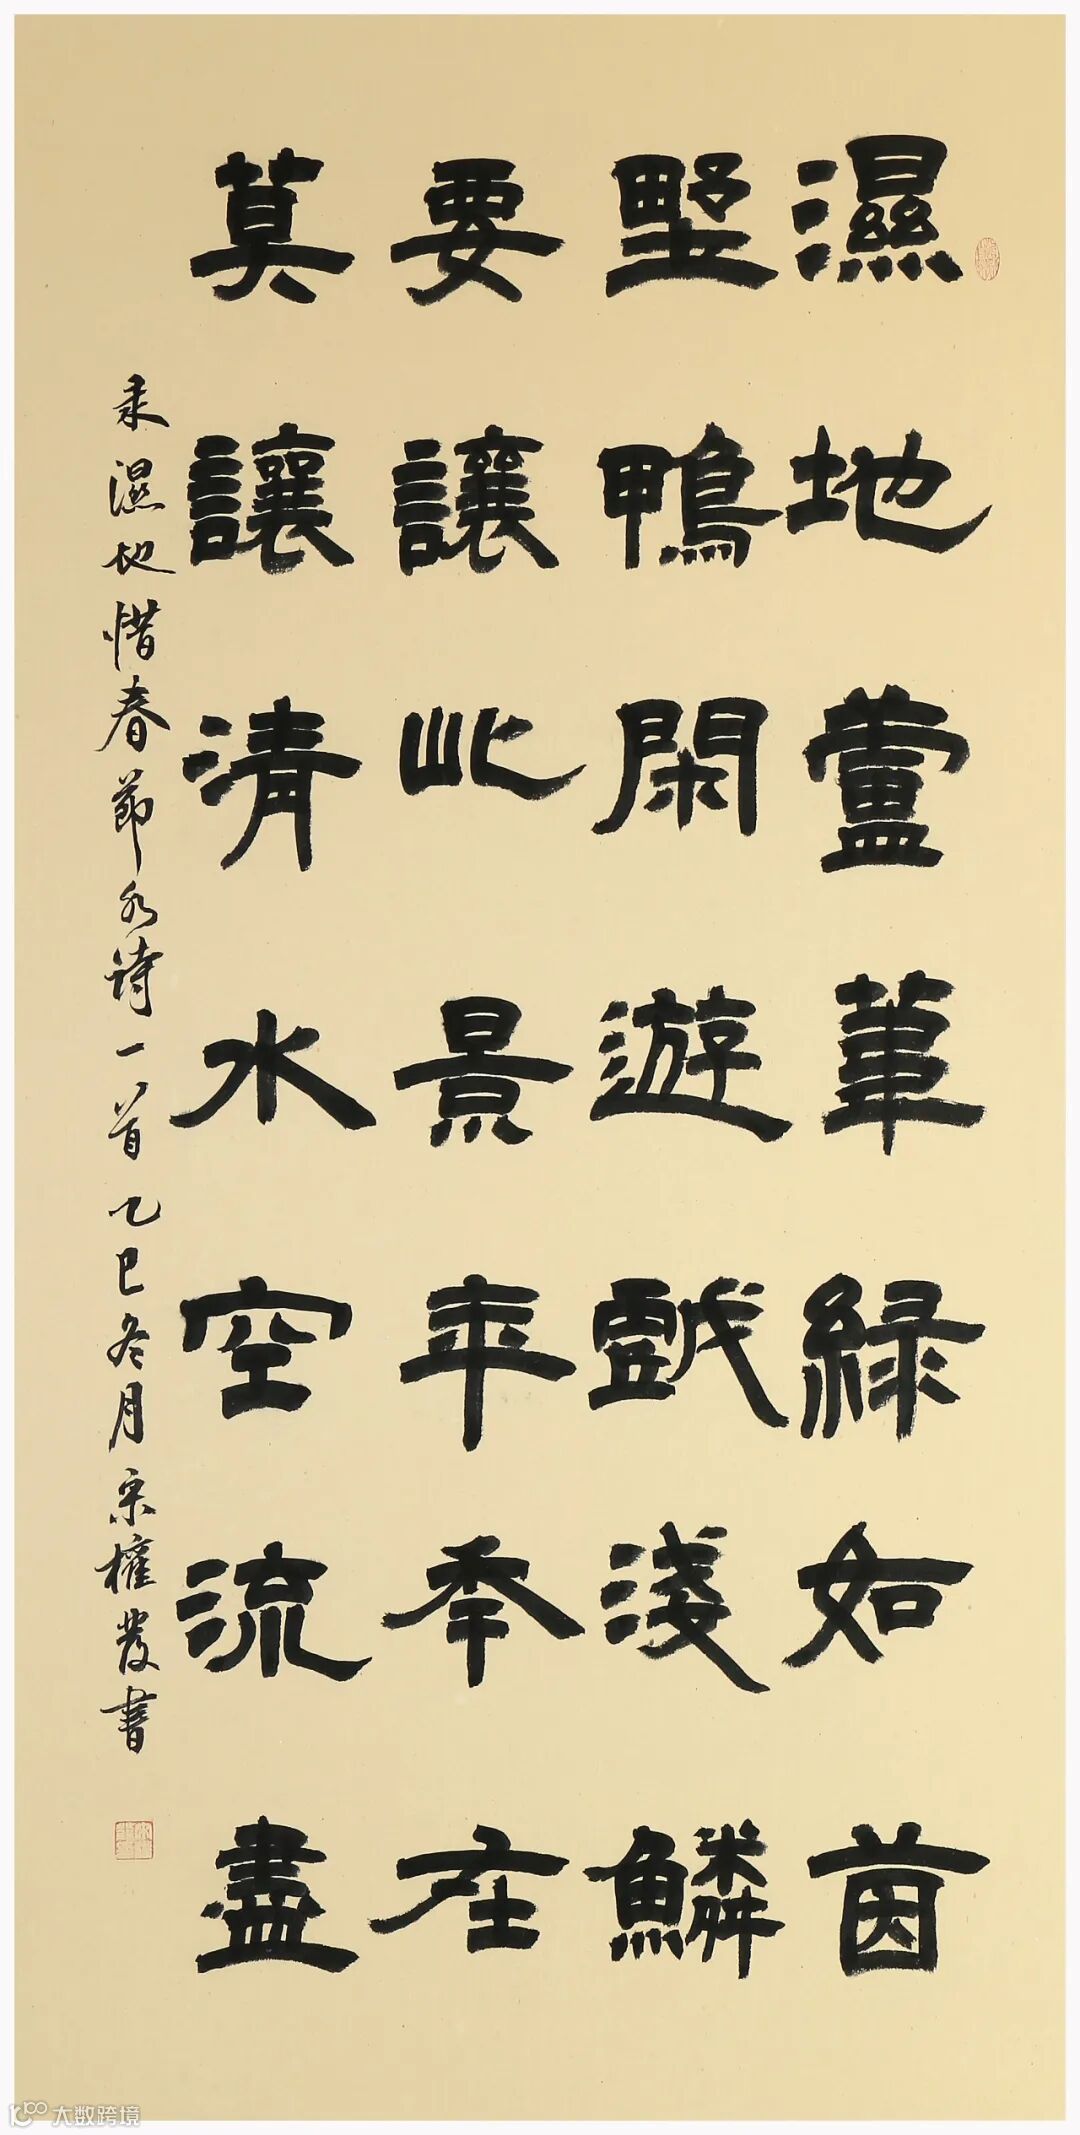 濕地蘆葦綠如茵
墅鴨閑遊戲淺鱗
要讓此景年秊在
莫讓清水空流盡
录濕地惜春節水诗一首乙巳冬月宋權發書
大数跨境